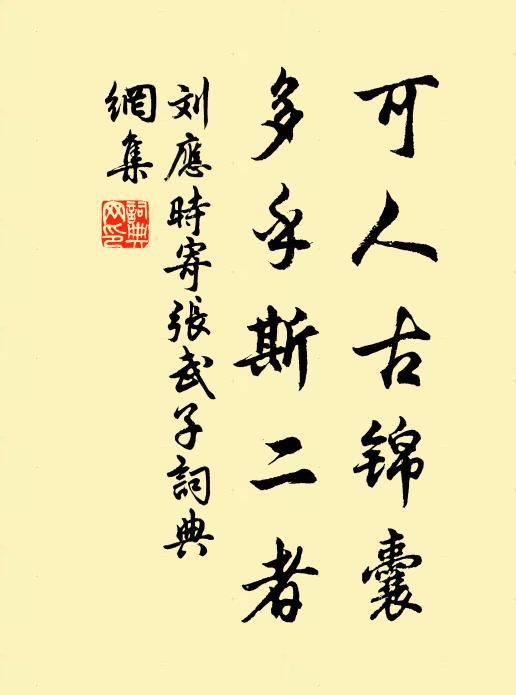 可人古锦囊
多乎斯二者
刘應時寄張武子詞典
網集
詞典
网印